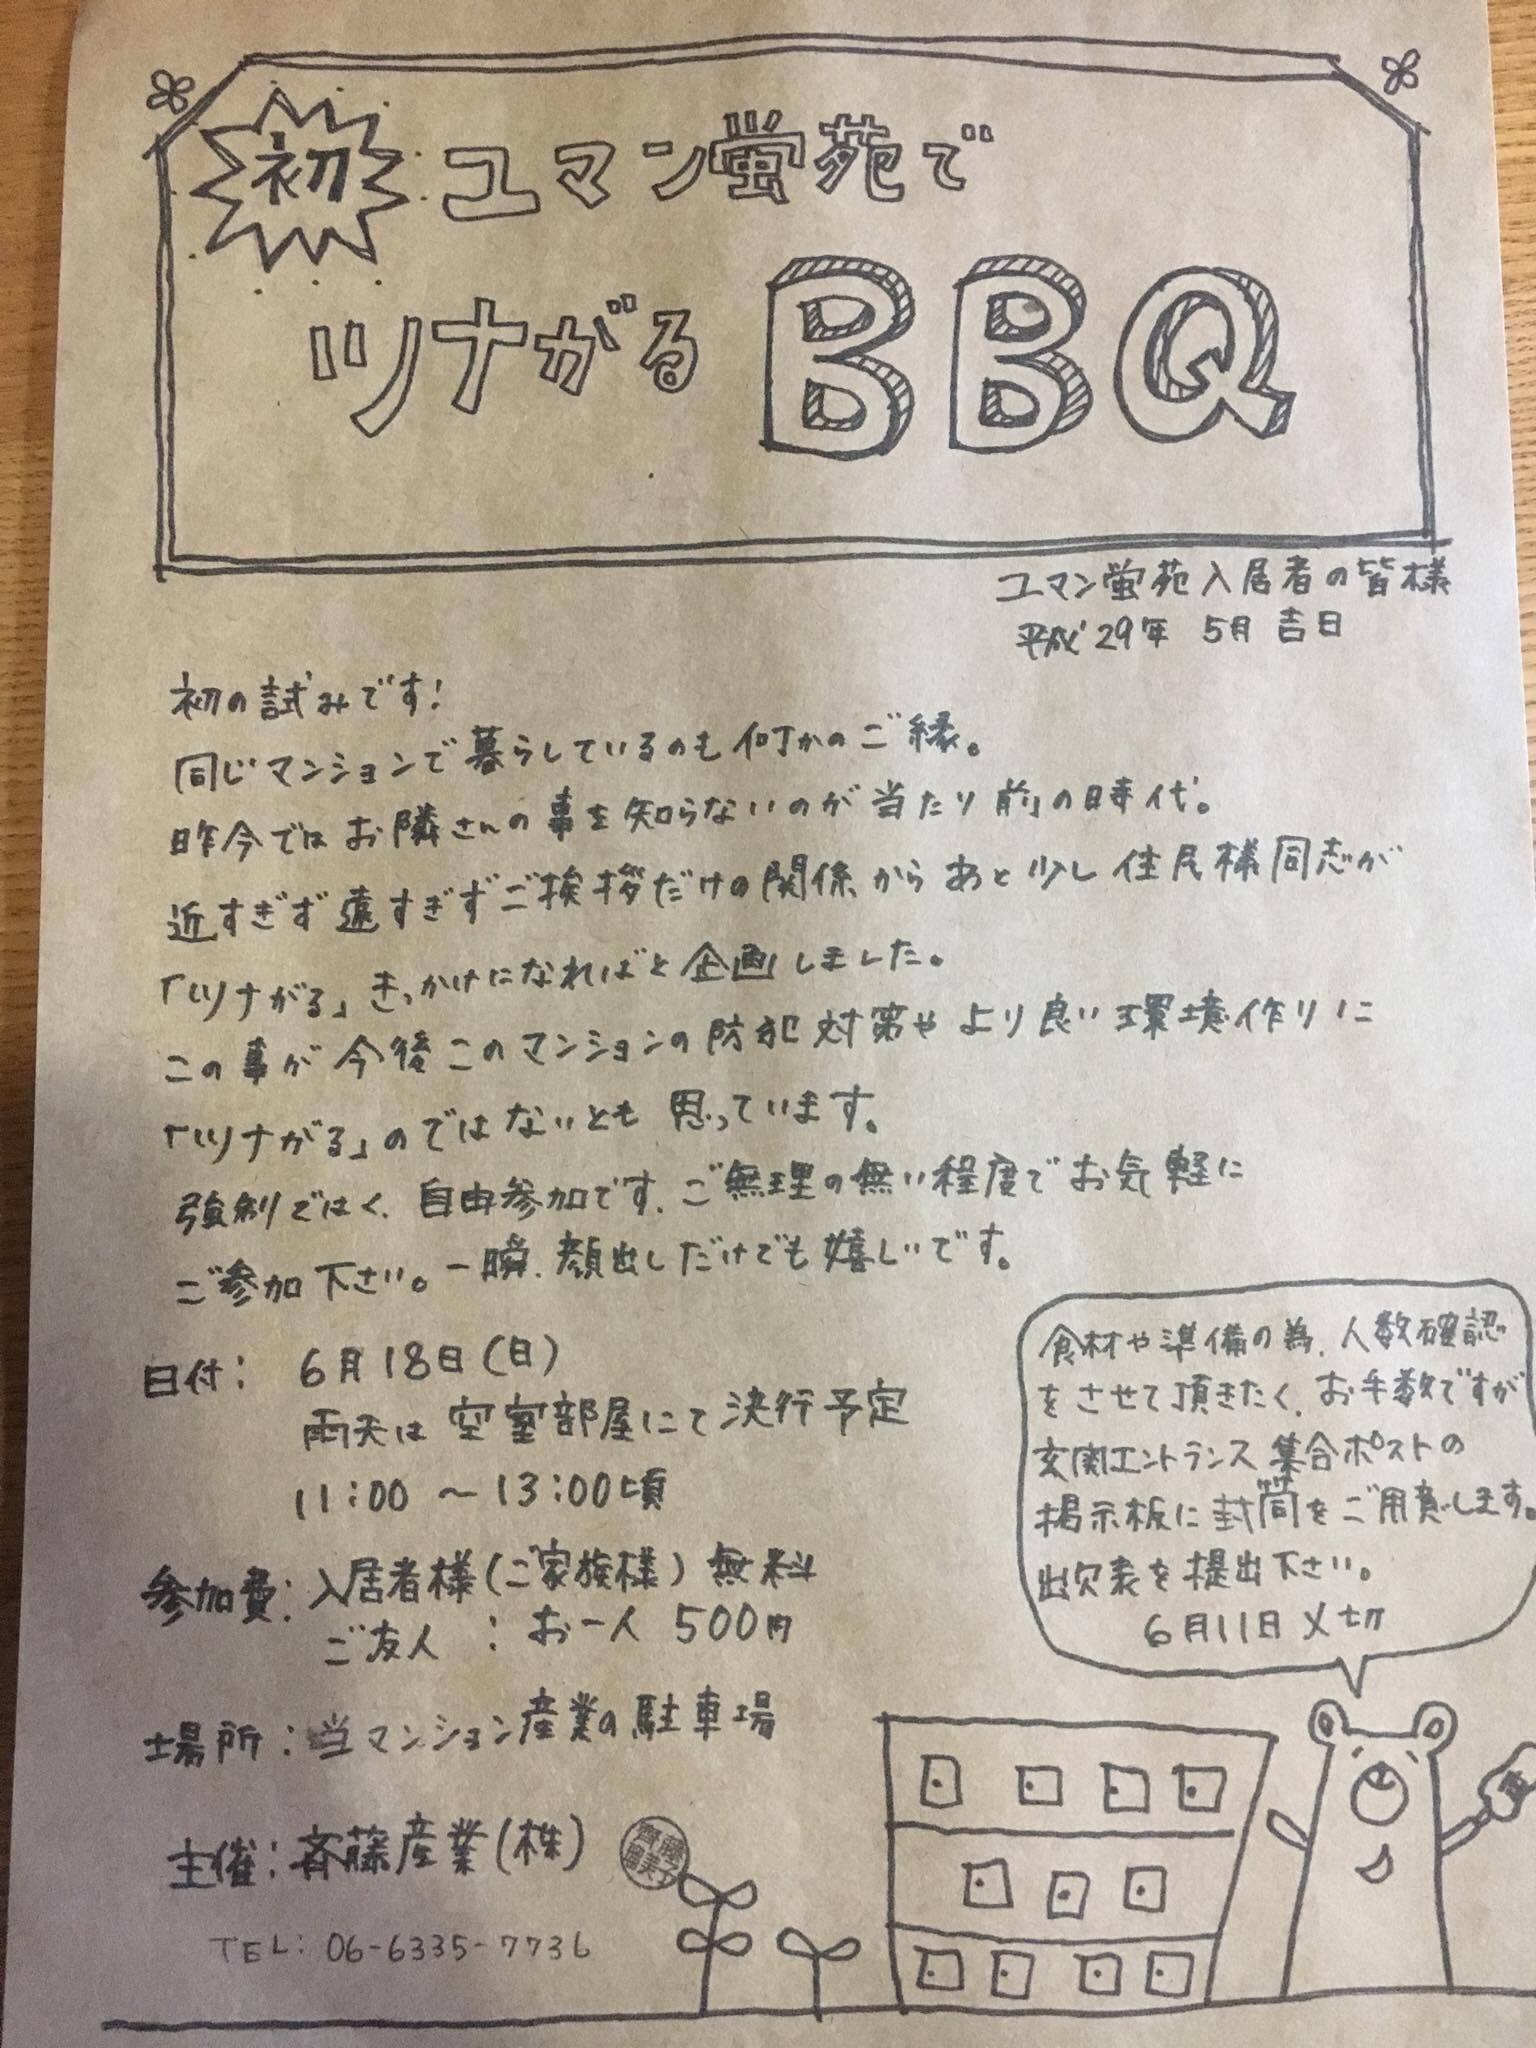 初 ユマン蛍苑で
ツナがる BBQ
ユマン蛍苑入居者の皆様
平成29年 5月 吉日
初の試みです!
同じマンションで暮らしているのも何かのご縁。
昨今ではお隣さんの事を知らないのが当たり前の時代。
近すぎず遠すぎずご挨拶だけの関係からあと少し住民様同志が
「ツナがる」きっかけになればと企画しました。
この事が今後このマンションの防犯対策やより良い環境作りに
「ツナがる」のではないとも思っています。
強制ではく、自由参加です、ご無理の無い程度でお気軽に
ご参加下さい。一瞬、顔出しだけでも嬉しいです。
日付: 6月18日(日)
雨天は空室部屋にて決行予定
11:00 〜 13:00頃
参加費: 入居者様(ご家族様) 無料
ご友人 : お一人 500円
場所: 当マンション産業の駐車場
主催: 斉藤産業(株)
TEL: 06-6335-7736
食材や準備の為、人数確認
をさせて頂きたく、お手数ですが
玄関エントランス集合ポストの
掲示板に封筒をご用意します。
出欠表を提出下さい。
6月11日〆切